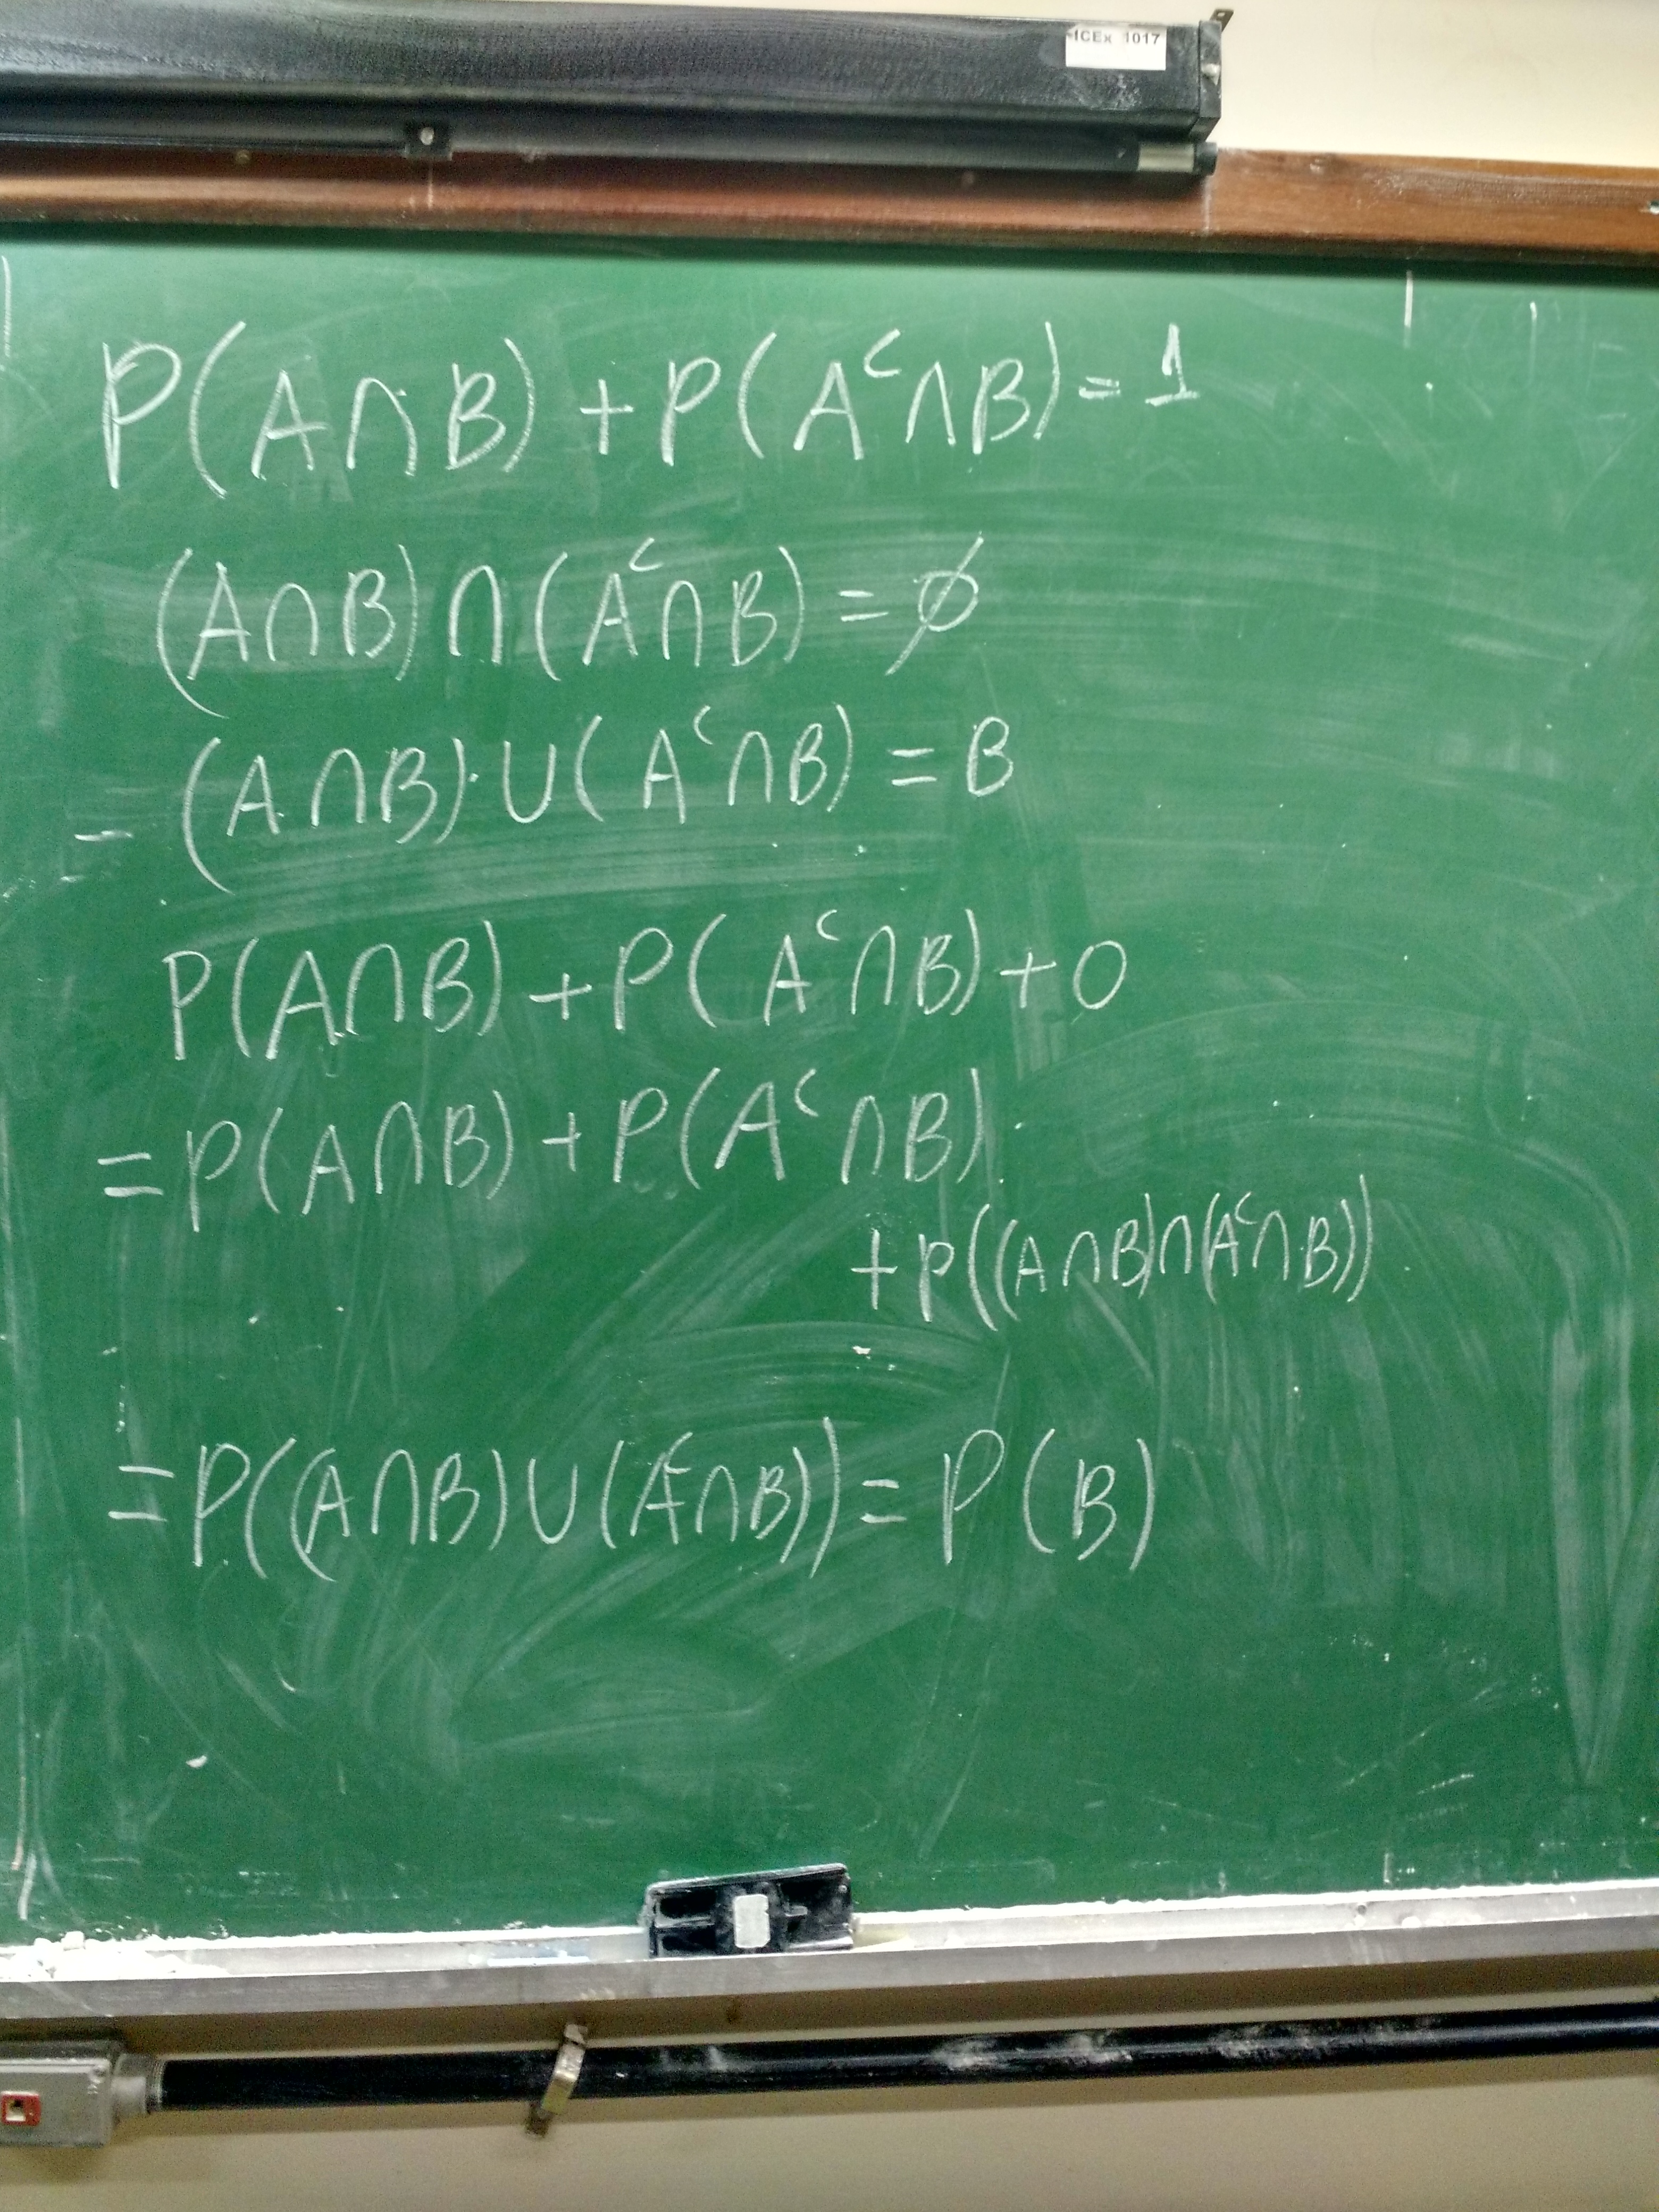 ICEx 1017
P(A∩B) + P(Aᶜ∩B) = 1
(A∩B)∩(Aᶜ∩B) = ∅
- (A∩B)∪(Aᶜ∩B) = B
P(A∩B) + P(Aᶜ∩B) + 0
= P(A∩B) + P(Aᶜ∩B)
+ P((A∩B)∩(Aᶜ∩B))
= P((A∩B)∪(Aᶜ∩B)) = P(B)